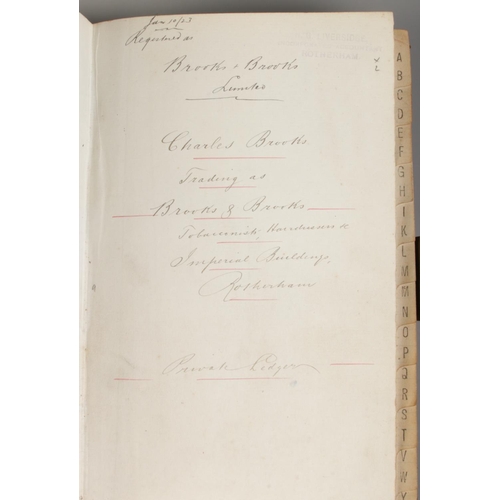 Jan 10/23
Registered as
Brooks & Brooks
Limited
Charles Brooks
Trading as
Brooks & Brooks
Tobacconists, Hairdressers &
Imperial Buildings,
Rotherham
Private Ledger
A
B
C
D
E
F
G
H
I
K
L
M
M
N
O
P
Q
R
S
T
V
W